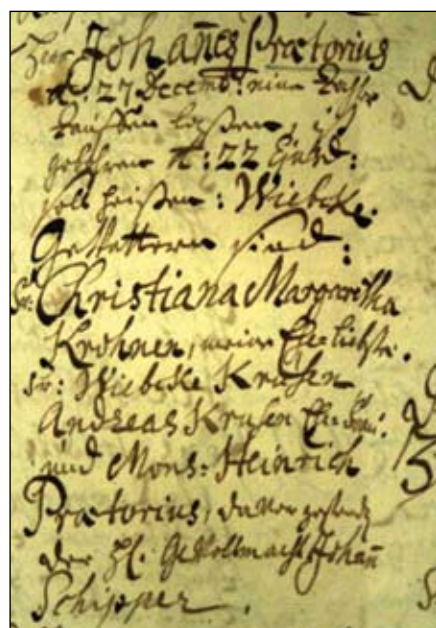 Herr Johañes Prætorius
d: 27 Decemb: eine Tochter
tauffen lassen, ist
gebohren d: 22 Ejusd:
soll heissen: Wiebcke.
Gevattern sind:
Fr: Christiana Margaritha
Krohnen, meine Eheliebste.
Fr: Wiebcke Krusen
Andreas Krusen
und Mons: Heinrich
Prætorius, davor gestanden
der H. Gevollmächt. Johañ
Schipper.